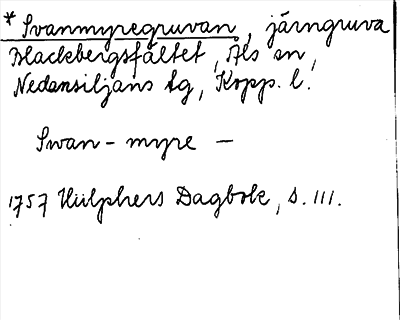 * Svanmyregruvan, järngruva
Blackbergsfältet, Als sn,
Nedansiljans tg, Kopp. l.
Swan-myre —
1757 Hülphers Dagbok, s. 111.